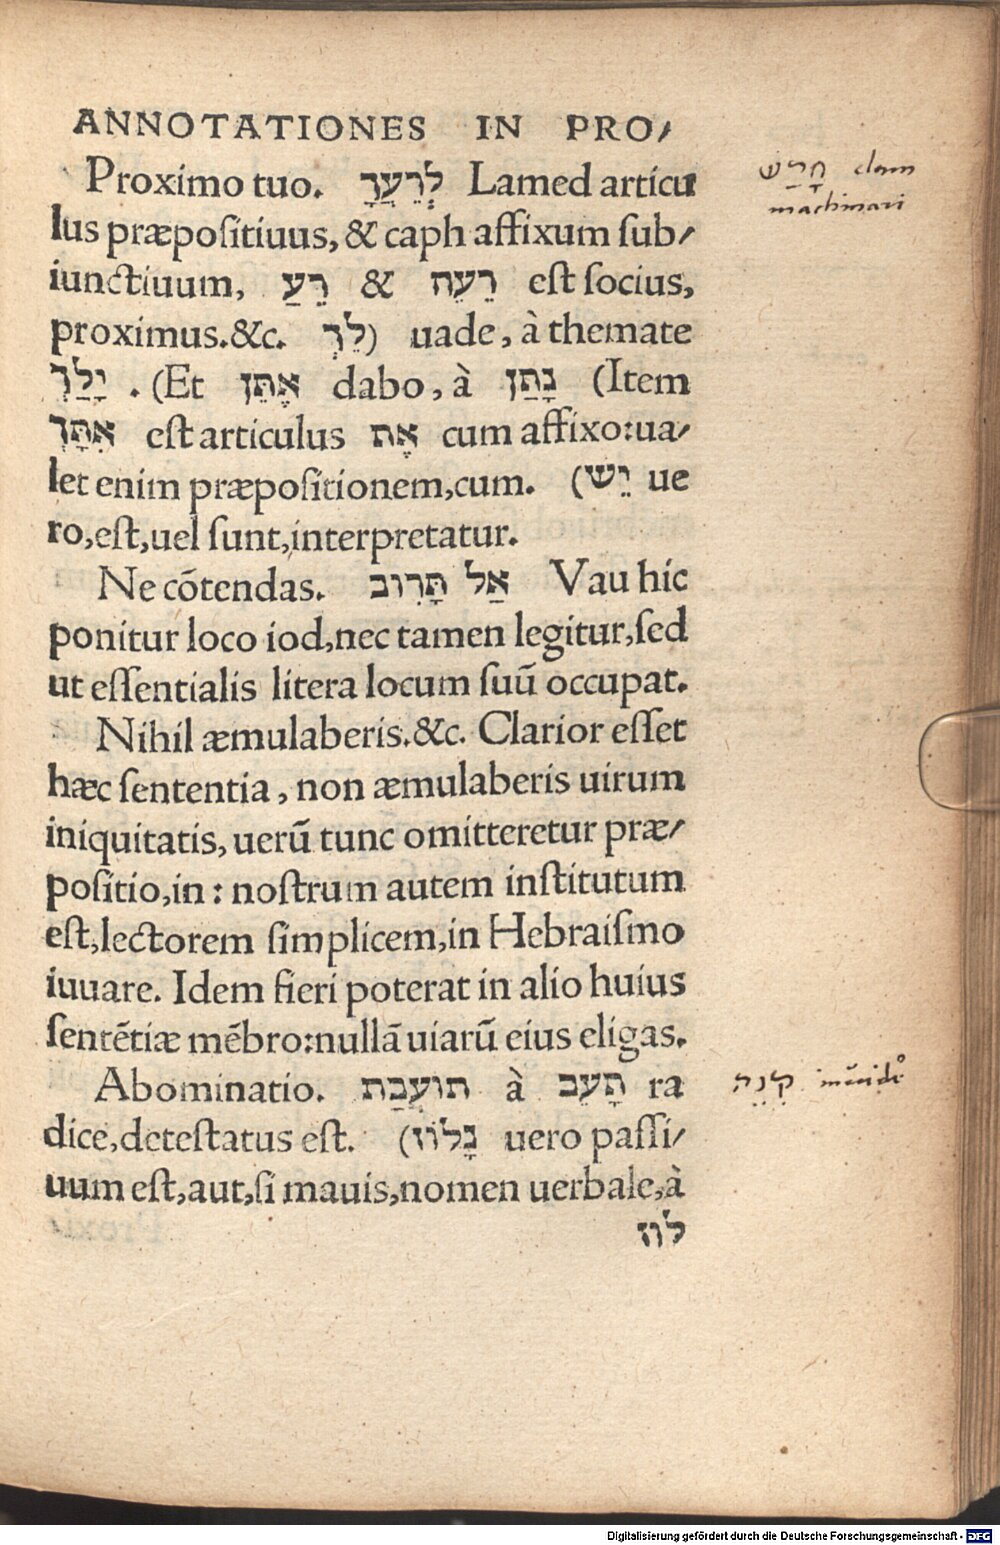 ANNOTATIONES IN PRO/
Proximo tuo. לְרֵעֲךָ Lamed articu
lus præpoſitiuus, & caph affixum ſub/
iunctiuum, רֵעַ & רֵעֶה eſt ſocius,
proximus.&c. לֵךְ) uade, à themate
יָלַךְ . (Et אֶתֵּן dabo, à נָתַן (Item
אִתָּךְ eſt articulus אֶת cum affixo:ua/
let enim præpoſitionem,cum. (יֵשׁ ue
ro,eſt,uel ſunt,interpretatur.
Ne cōtendas. אַל תָּרִוב Vau hic
ponitur loco iod,nec tamen legitur,ſed
ut eſſentialis litera locum ſuū occupat.
Nihil æmulaberis.&c. Clarior eſſet
hæc ſententia, non æmulaberis uirum
iniquitatis, uerū tunc omitteretur præ/
poſitio,in: noſtrum autem inſtitutum
eſt,lectorem ſimplicem,in Hebraiſmo
iuuare. Idem fieri poterat in alio huius
ſentētiæ mēbro:nullā uiarū eius eligas.
Abominatio. תּוֹעֲבַת à תָּעַב ra
dice,deteſtatus eſt. (נָלוֹז uero paſſi/
uum eſt,aut,ſi mauis,nomen uerbale,à
לוז
חָרַשׁ clam
machinari
קִנֵּה
Digitalisierung gefördert durch die Deutsche Forschungsgemeinschaft - DFG